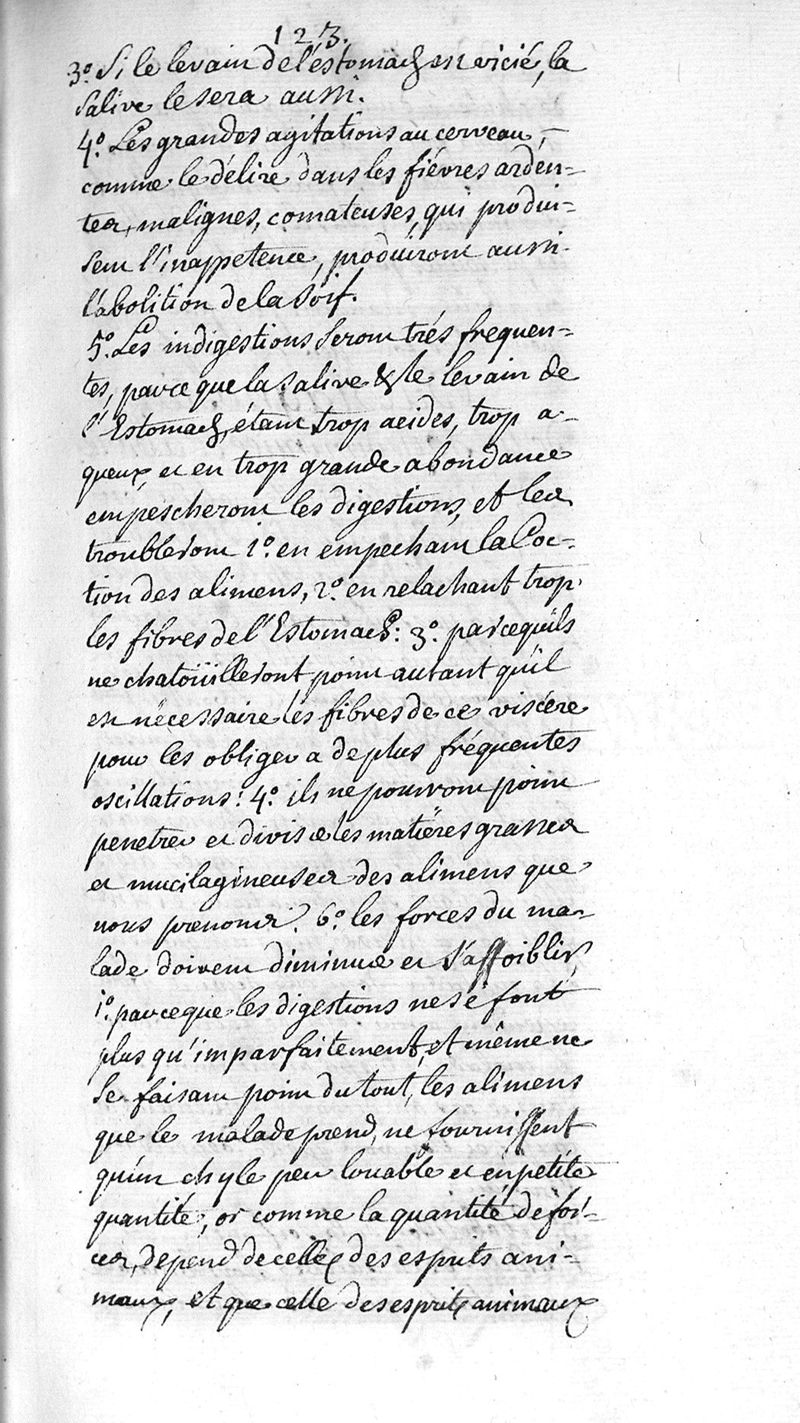 123.
3.° Si le levain de l'éstomach est vicié, la
salive le sera aussi.
4.° Les grandes agitations au cerveau,
comme le délire dans les fiévres arden=
tes, malignes, comateuses, qui produi=
sent l'inappetence, produiront aussi
l'abolition de la soif.
5.° Les indigestions seront trés frequen=
tes, parce que la salive & le levain de
l'Estomach, étant trop acides, trop a-
queux, et en trop grande abondance
empescheront les digestions, et les
troubleront 1.° en empechant la Coc-
tion des alimens, 2.° en relachant trop
les fibres de l'Estomach: 3.° parcequ'ils
ne chatoüilleront point autant qu'il
est nécessaire les fibres de ce viscére
pour les obliger a de plus fréquentes
oscillations: 4.° ils ne pourront point
penetrer et diviser les matiéres grasses
et mucilagineuses des alimens que
nous prenons. 6.° les forces du ma-
lade doivent diminuer et s'affoiblir
1.° parceque les digestions ne se font
plus qu'imparfaitement, et même ne
se faisant point du tout, les alimens
que le malade prend, ne fournissent
qu'un chyle peu louable et en petite
quantité, or comme la quantité de for=
ces, depend de celle des esprits ani=
maux, et que celle des esprits animaux